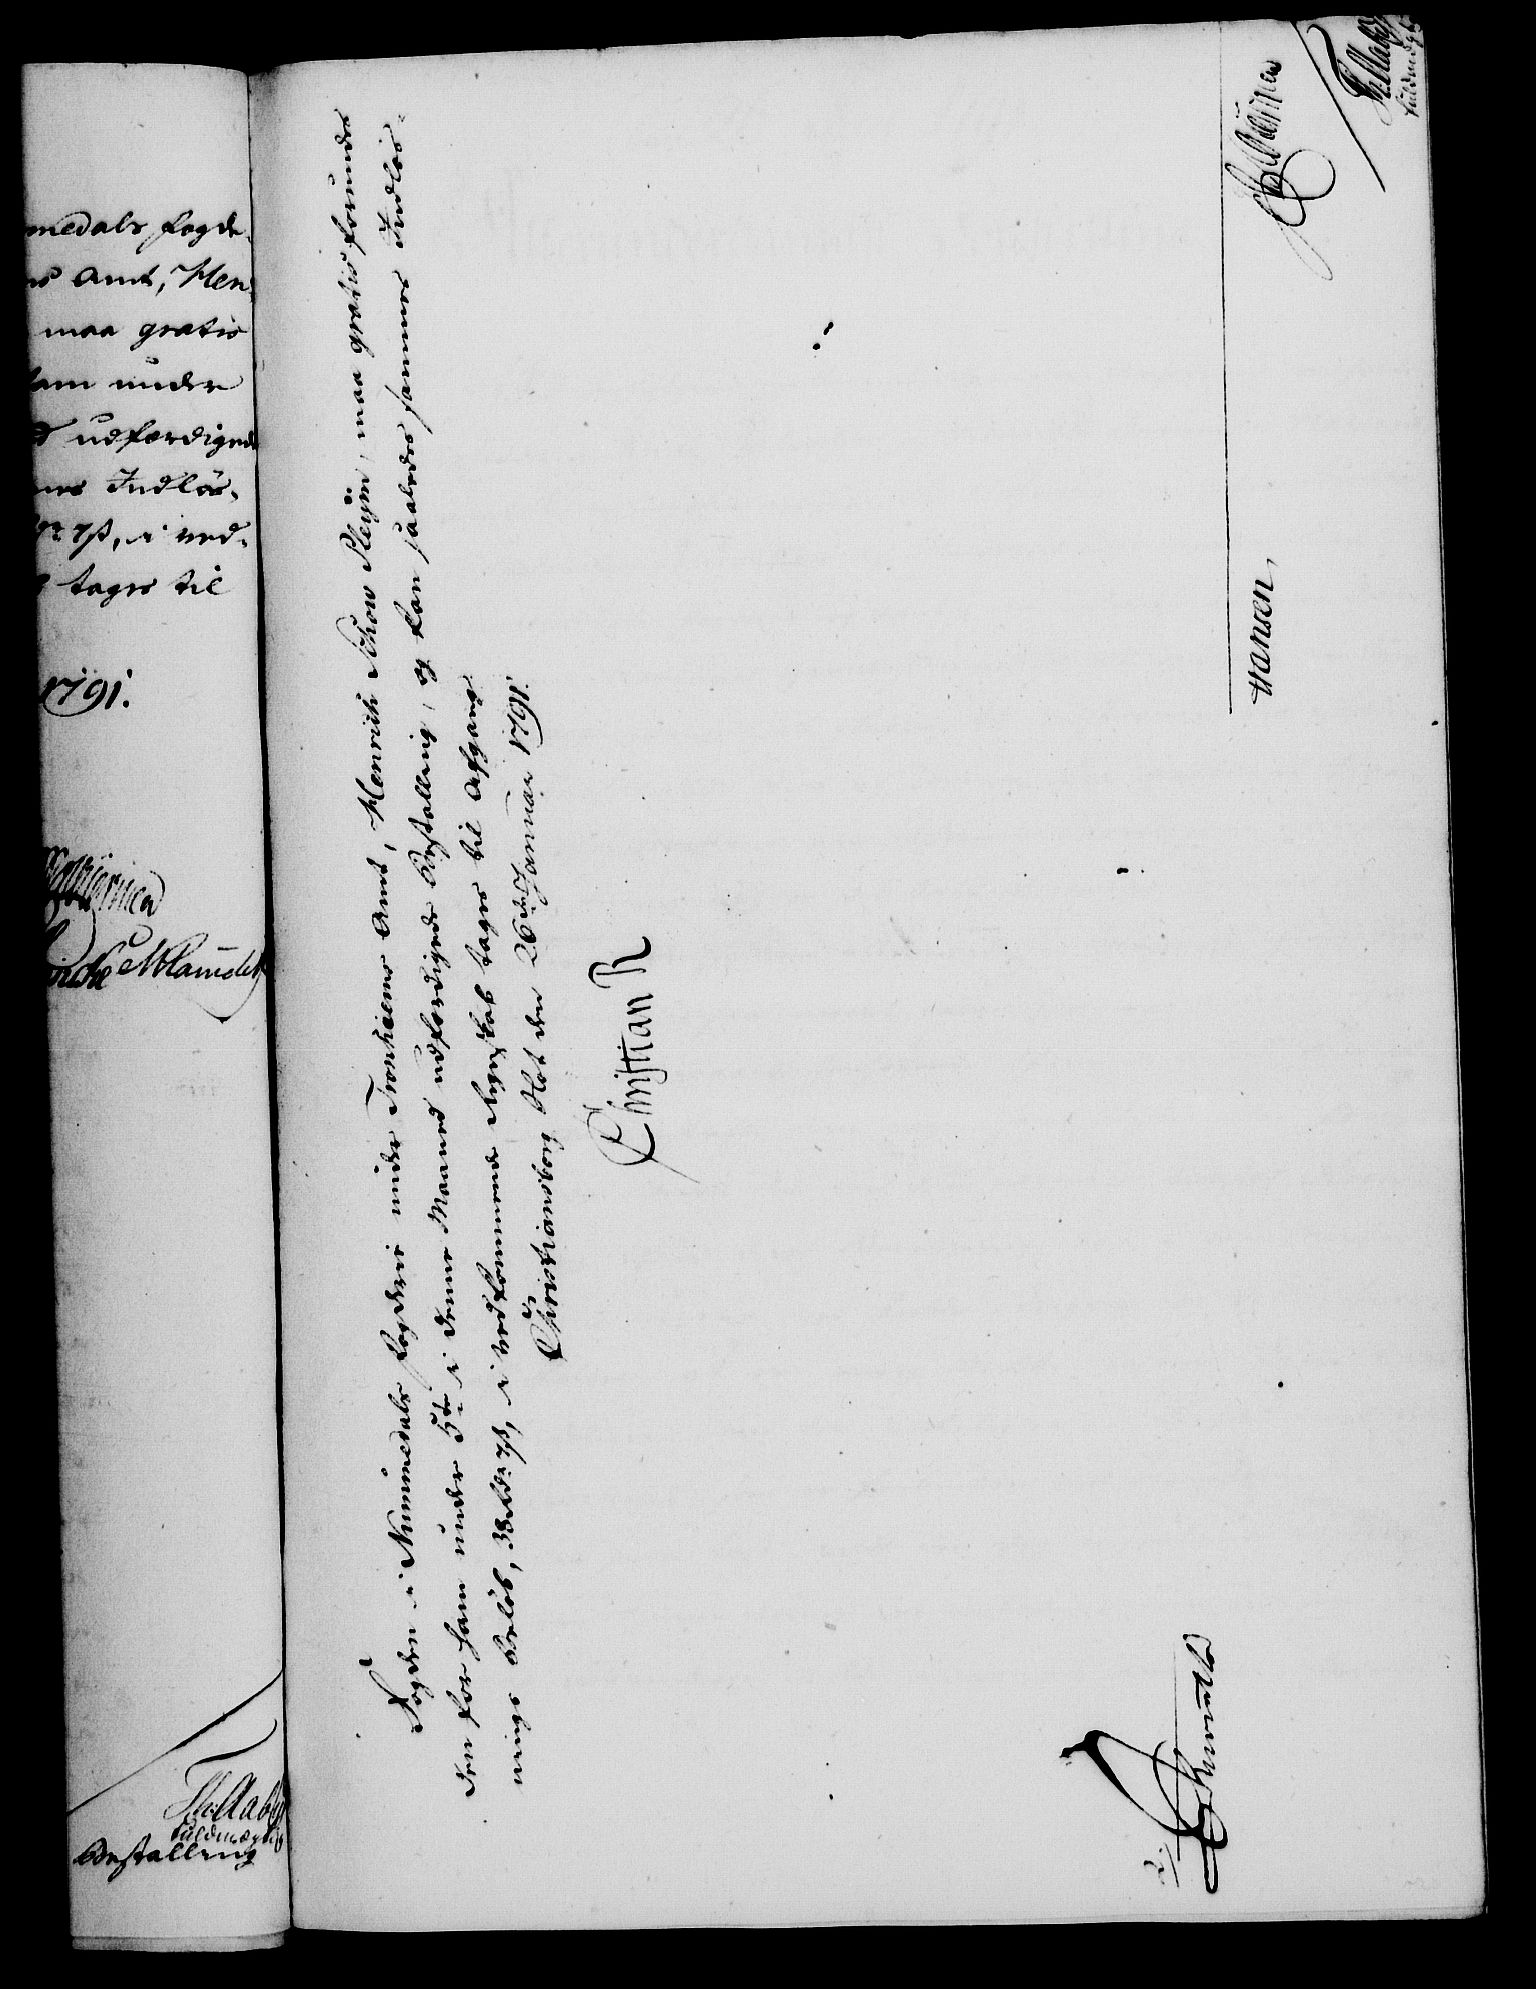 medals Fogde-
Amt, Hen-
maa gratis
ham under
udfærdigede
Indløs-
7 ß, i ved-
tages til
1791.
Th: Aaby
Fuldmægtig
Bestalling
Fogden i Nummedals Fogderie under Tronhiems Amt, Henrich Schow Pleÿm, maa gratis forundes
den for ham under 5te i denne Maaned udfærdigede Bestalling, og kan saaledes sammes Indløs-
nings Beløb, 38 Rdr 7 ß, i vedkommende Regnskab tages til Afgang.
Christiansborg Slot den 26de Januar 1791.
Christian R
Hansen,
Th: Aaby
Fuldmægtig